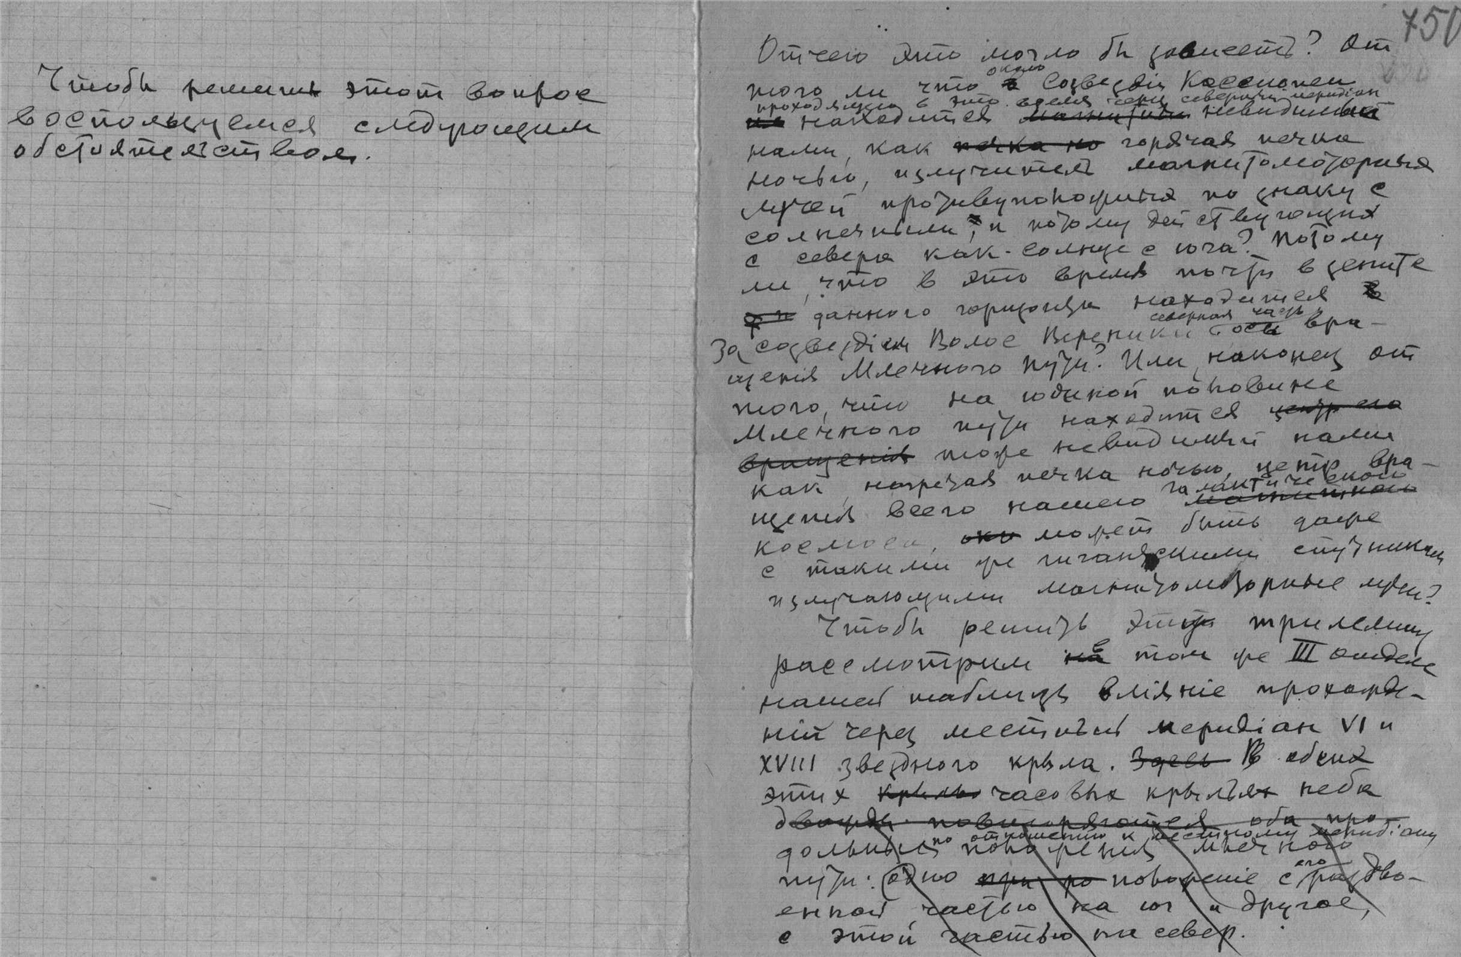 Чтобы решить этот вопрос
воспользуемся следующим
обстоятельством.
750
Отчего это могло бы зависеть? От
того ли что около Созвездия Кассиопеи
проходящего в это время через северный меридиан
находится невидимый
нами, как печка но горячая печка
ночью, излучитель магнитомоторных
лучей противуположных по знаку с
солнечными, и потому действующих
с севера как солнце с юга? Потому
ли, что в это время почти в зените
данного горизонта находится в
северная часть
За созвездием Волос Вереники оси вра-
щения Млечного пути? Или, наконец от
того, что на южной половине
Млечного пути находится центр его
вращения тоже невидимый нами
как нагретая печка ночью, центр вра-
галактического
щения всего нашего магнитного
космоса, может быть даже
с такими же гигантскими спутниками
излучающими магнитомоторные лучи?
Чтобы решить эту трилемму
рассмотрим на в том же III отделе
нашей таблицы влияние прохожде-
ний через местный меридіан VI и
XVIII звездного крыла. Здесь В обоих
этих крылья часовых крыльях неба
дважды повторяются оба про-
по отношению к местному меридіану
дольных положения млечного
пути: одно при ро положение с его раздво-
енной частью на юг и другое,
с этой частью на север.